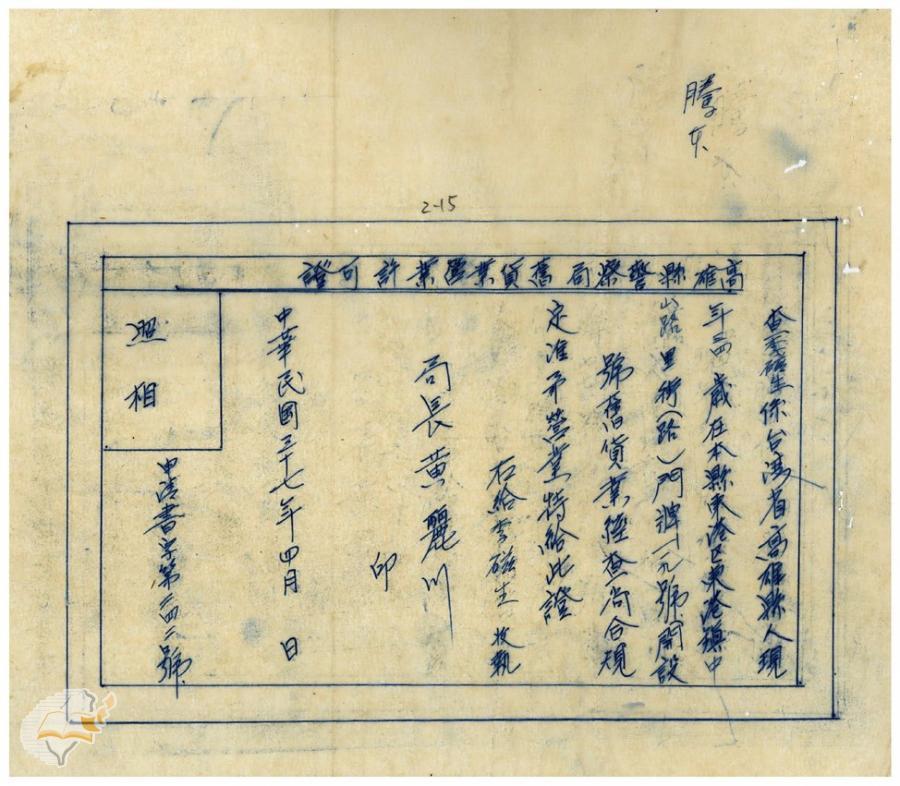 謄本
2-15
高雄縣警察局舊貨業營業許可證
查李磁生係台灣省高雄縣人現
年三四歲在本縣東港区東港鎮中
山路里街(路)門牌一九號開設
號舊貨業經查尚合規
定准予營業特給此證
右給李磁生收執
局長黃麗川
印
中華民國三十七年四月 日
照相
申請書字第二四二號